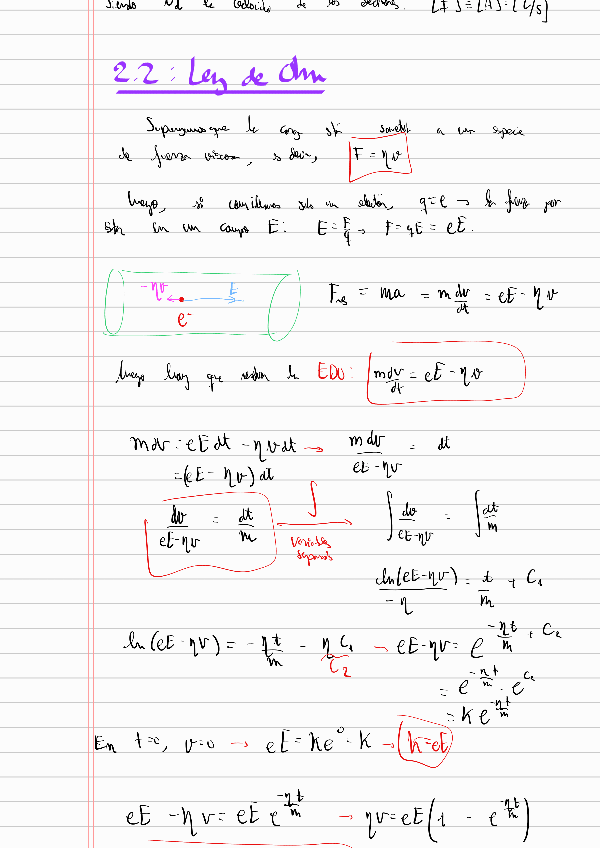 siendo Nd la velocidad de los electrones. [I] ≡ [A] = [C/s]
2.2: Ley de Ohm
Supongamos que la carg está sometida a una especie
de fuerza viscosa, es decir, F = ηv
luego, si consideramos solo un electrón, q=e → la fuerza por
estar en un campo E: E = F/q → F = qE = eE.
-ηv E
e⁻
F_res = ma = m dv/dt = eE - ηv
luego hay que resolver la EDO: m dv/dt = eE - ηv
mdv = eEdt - ηvdt → mdv/(eE-ηv) = dt
=(eE - ηv)dt
dv/(eE-ηv) = dt/m ∫ variables separadas ∫ dv/(eE-ηv) = ∫ dt/m
ln(eE-ηv)/-η = t/m + C₁
ln(eE-ηv) = -ηt/m - ηC₁ → eE-ηv = e^(-ηt/m + C₂)
C₂
= e^(-ηt/m) · e^(C₂)
= k e^(-ηt/m)
En t=0, v=0 → eE = ke⁰ = k → k=eE
eE - ηv = eE e^(-ηt/m) → ηv = eE(1 - e^(-ηt/m))